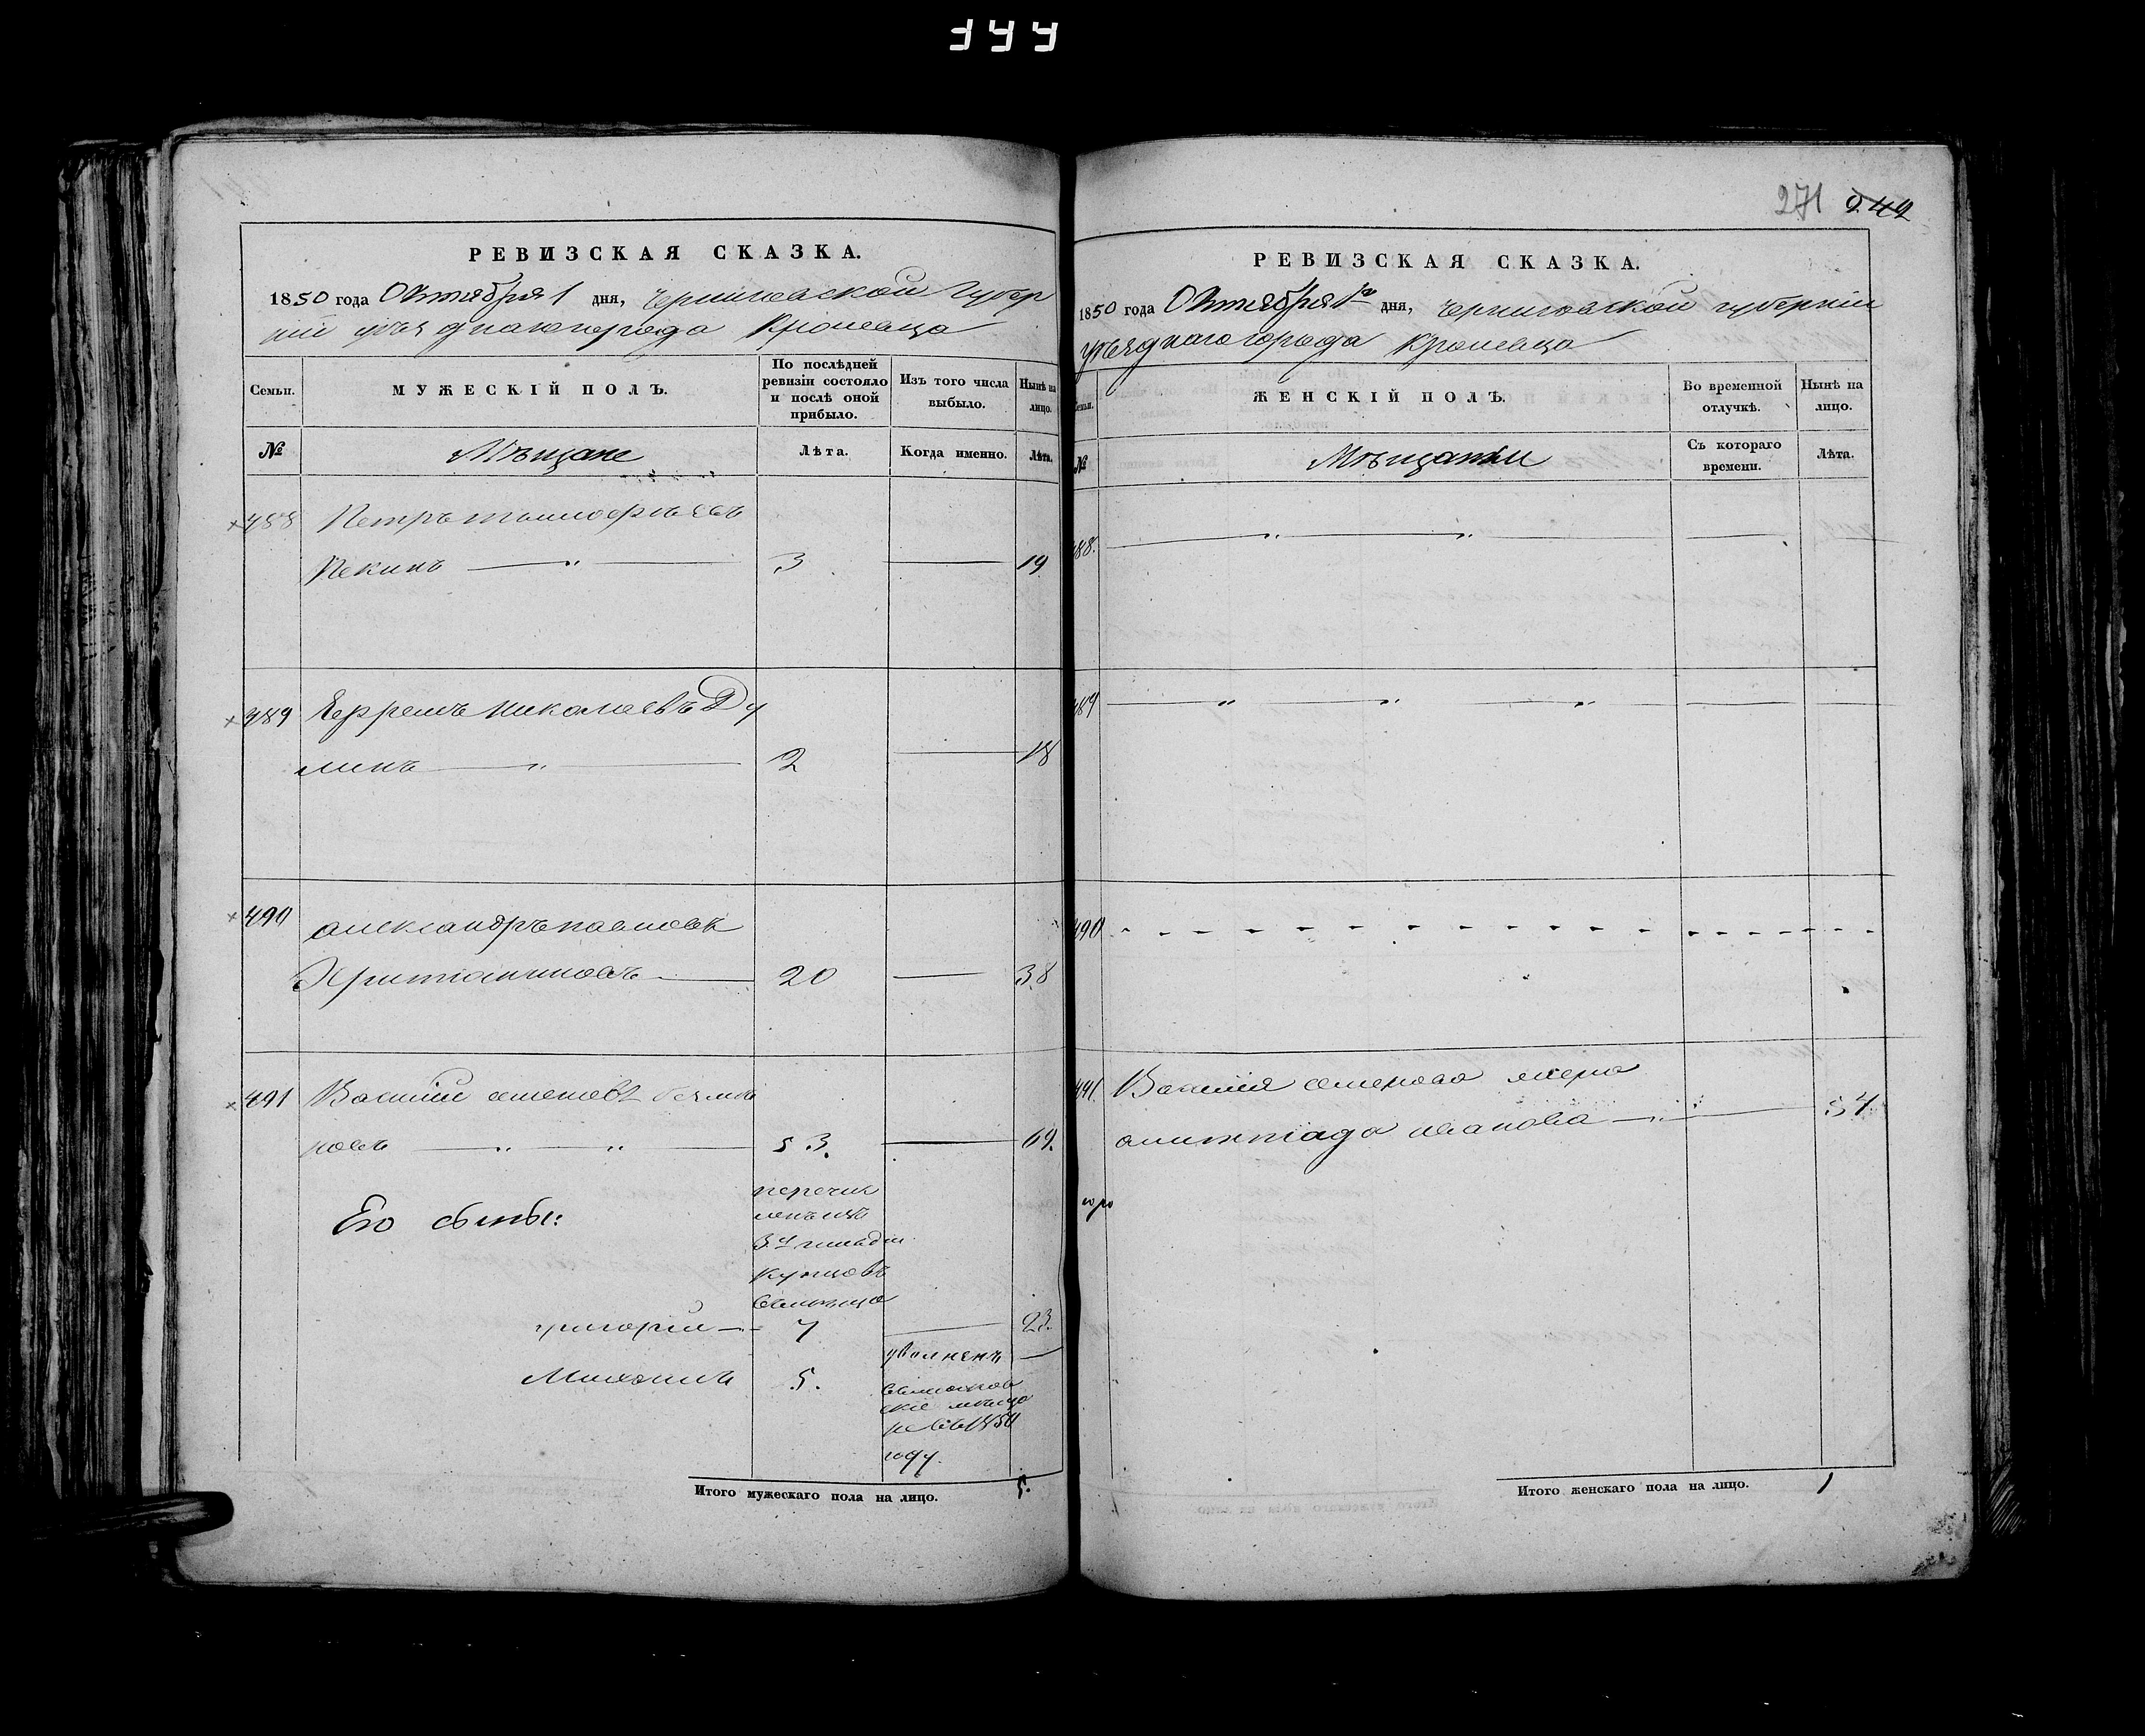 271 242
РЕВИЗСКАЯ СКАЗКА.
1850 года Октября 1 дня, Черниговской Губер
ніи уѣзднаго города Кролевца
Семьи.
МУЖЕСКІЙ ПОЛЪ.
По послѣдней ревизіи состояло и послѣ оной прибыло.
Изъ того числа выбыло.
Нынѣ на лицо.
№
Мѣщане
Лѣта.
Когда именно.
Лѣта.
488 Петръ Тимофѣевъ
Пекинъ 3 19
489 Ефремъ Николаевъ Ду
линъ 2 18
490 Александръ Павловъ
Християновъ 20 38
491 Василій Семеновъ
ровъ 53. 69.
Его сыны:
перечис
ленъ изъ
3й гильдіи
купцовъ
григорій 7 23.
Михаилъ 5.
уволненъ
не въ 1850
году.
Итого мужескаго пола на лицо. 5.
РЕВИЗСКАЯ СКАЗКА.
1850 года Октября 1го дня, Черниговской губерніи
уѣзднаго города Кролевца
Семьи.
ЖЕНСКІЙ ПОЛЪ.
Во временной отлучкѣ.
Нынѣ на лицо.
№
Мѣщанки
Съ котораго времени.
Лѣта.
488.
489
490
491. Василія Семенова жена
Олимпіада Иванова 57
Итого женскаго пола на лицо. 1